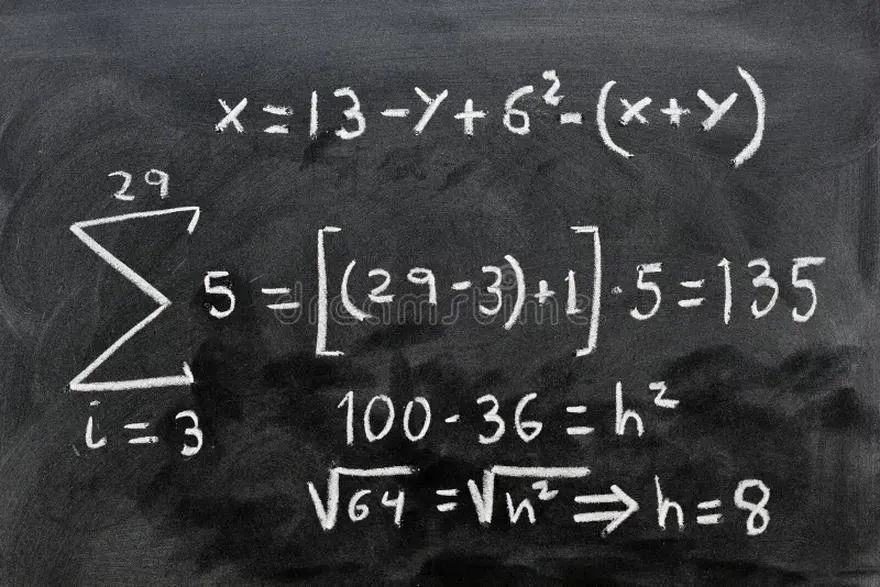 x = 13 - y + 6² - (x + y)
29
∑ 5 = [(29 - 3) + 1] · 5 = 135
i = 3
100 - 36 = h²
√64 = √h² ⇒ h = 8
dreamstime